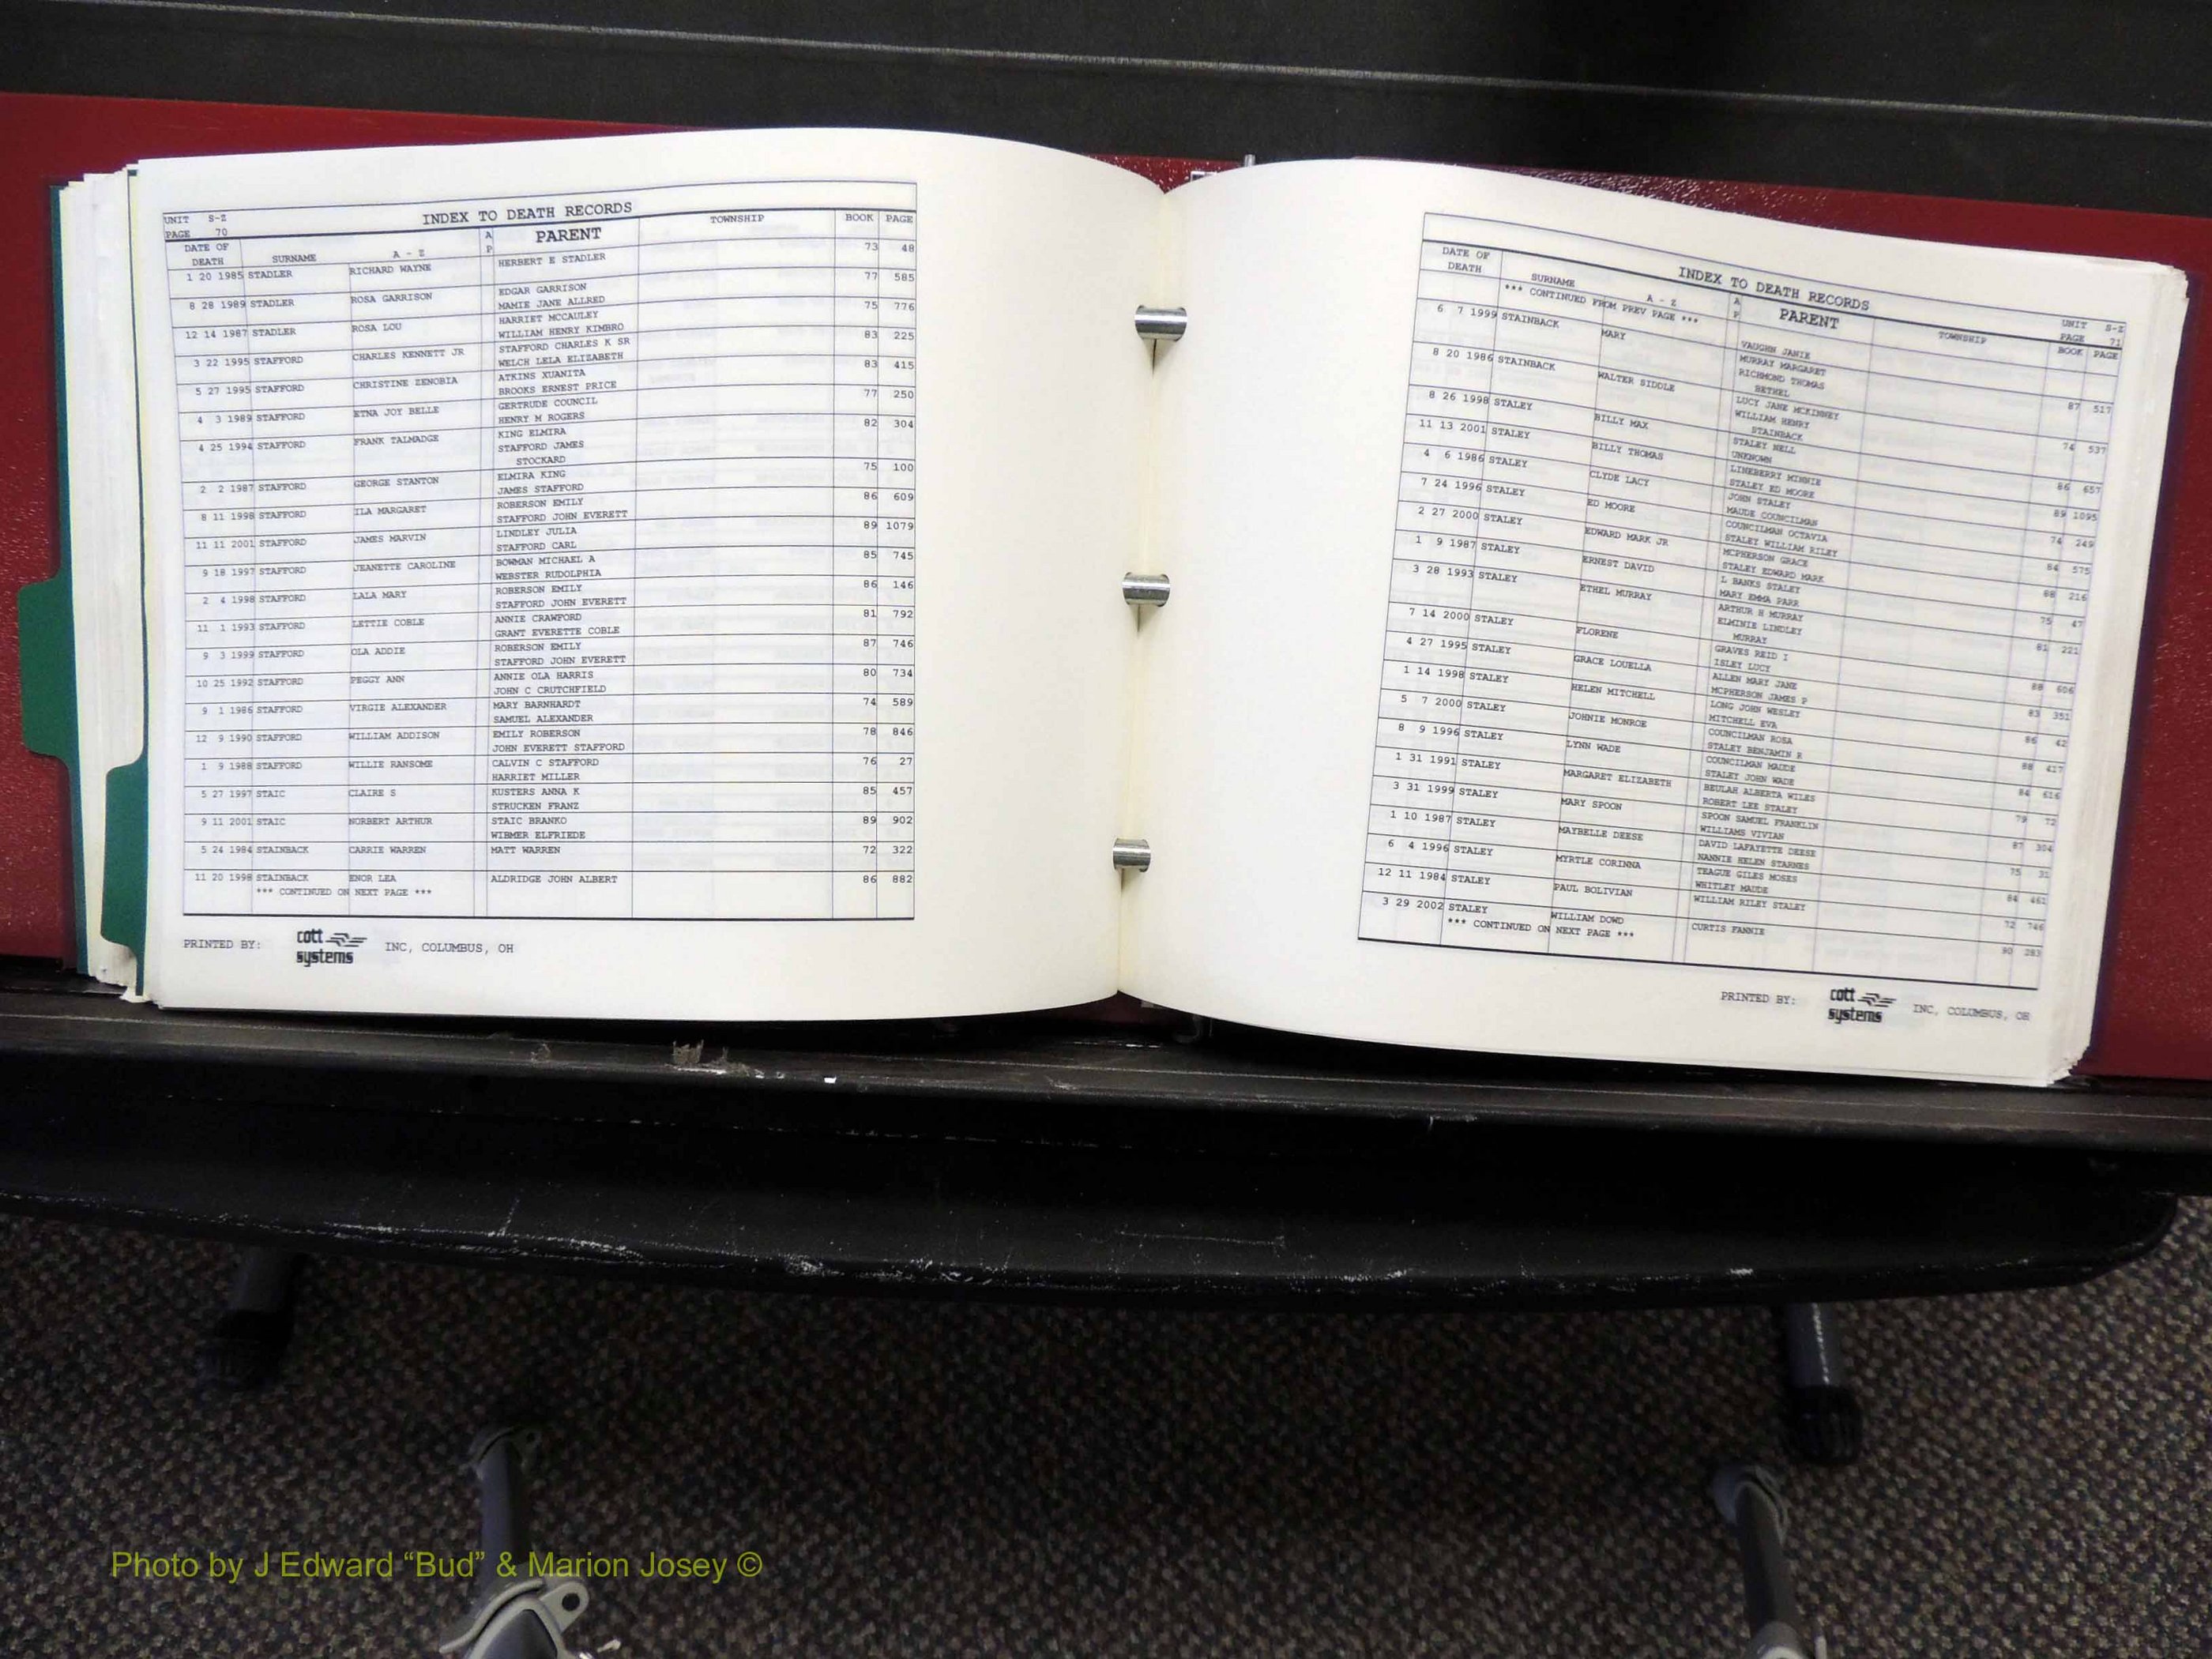 UNIT S-Z
PAGE 70
INDEX TO DEATH RECORDS
DATE OF DEATH SURNAME A - Z A P PARENT TOWNSHIP BOOK PAGE
1 20 1985 STADLER RICHARD WAYNE HERBERT E STADLER 73 48
8 28 1989 STADLER ROSA GARRISON EDGAR GARRISON 77 585
MAMIE JANE ALLRED
12 14 1987 STADLER ROSA LOU HARRIET MCCAULEY 75 776
WILLIAM HENRY KIMBRO
3 22 1995 STAFFORD CHARLES KENNETT JR STAFFORD CHARLES K SR 83 225
WELCH LELA ELIZABETH
5 27 1995 STAFFORD CHRISTINE ZENOBIA ATKINS XUANITA 83 415
BROOKS ERNEST PRICE
4 3 1989 STAFFORD ETNA JOY BELLE GERTRUDE COUNCIL 77 250
HENRY M ROGERS
4 25 1994 STAFFORD FRANK TALMADGE KING ELMIRA 82 304
STAFFORD JAMES
STOCKARD
2 2 1987 STAFFORD GEORGE STANTON ELMIRA KING 75 100
JAMES STAFFORD
8 11 1998 STAFFORD ILA MARGARET ROBERSON EMILY 86 609
STAFFORD JOHN EVERETT
11 11 2001 STAFFORD JAMES MARVIN LINDLEY JULIA 89 1079
STAFFORD CARL
9 18 1997 STAFFORD JEANETTE CAROLINE BOWMAN MICHAEL A 85 745
WEBSTER RUDOLPHIA
2 4 1998 STAFFORD LALA MARY ROBERSON EMILY 86 146
STAFFORD JOHN EVERETT
11 1 1993 STAFFORD LETTIE COBLE ANNIE CRAWFORD 81 792
GRANT EVERETTE COBLE
9 3 1999 STAFFORD OLA ADDIE ROBERSON EMILY 87 746
STAFFORD JOHN EVERETT
10 25 1992 STAFFORD PEGGY ANN ANNIE OLA HARRIS 80 734
JOHN C CRUTCHFIELD
9 1 1986 STAFFORD VIRGIE ALEXANDER MARY BARNHARDT 74 589
SAMUEL ALEXANDER
12 9 1990 STAFFORD WILLIAM ADDISON EMILY ROBERSON 78 846
JOHN EVERETT STAFFORD
1 9 1988 STAFFORD WILLIE RANSOME CALVIN C STAFFORD 76 27
HARRIET MILLER
5 27 1997 STAIC CLAIRE S KUSTERS ANNA K 85 457
STRUCKEN FRANZ
9 11 2001 STAIC NORBERT ARTHUR STAIC BRANKO 89 902
WIBMER ELFRIEDE
5 24 1984 STAINBACK CARRIE WARREN MATT WARREN 72 322
11 20 1998 STAINBACK ENOR LEA ALDRIDGE JOHN ALBERT 86 882
*** CONTINUED ON NEXT PAGE ***
PRINTED BY: cott systems INC, COLUMBUS, OH
INDEX TO DEATH RECORDS
UNIT S-Z
PAGE 71
DATE OF DEATH SURNAME A - Z A P PARENT TOWNSHIP BOOK PAGE
*** CONTINUED FROM PREV PAGE ***
VAUGHN JANIE
6 7 1999 STAINBACK MARY MURRAY MARGARET 87 517
RICHMOND THOMAS
BETHEL
8 20 1986 STAINBACK WALTER SIDDLE LUCY JANE MCKINNEY 74 537
WILLIAM HENRY
STAINBACK
8 26 1998 STALEY BILLY MAX STALEY NELL 86 657
UNKNOWN
11 13 2001 STALEY BILLY THOMAS LINEBERRY MINNIE 89 1095
STALEY ED MOORE
4 6 1986 STALEY CLYDE LACY JOHN STALEY 74 249
MAUDE COUNCILMAN
7 24 1996 STALEY ED MOORE COUNCILMAN OCTAVIA 84 575
STALEY WILLIAM RILEY
2 27 2000 STALEY EDWARD MARK JR MCPHERSON GRACE 88 216
STALEY EDWARD MARK
1 9 1987 STALEY ERNEST DAVID L BANKS STALEY 75 47
MARY EMMA PARR
3 28 1993 STALEY ETHEL MURRAY ARTHUR H MURRAY 81 221
ELMINIE LINDLEY
MURRAY
7 14 2000 STALEY FLORENE GRAVES REID I 88 606
ISLEY LUCY
4 27 1995 STALEY GRACE LOUELLA ALLEN MARY JANE 83 351
MCPHERSON JAMES P
1 14 1998 STALEY HELEN MITCHELL LONG JOHN WESLEY 86 42
MITCHELL EVA
5 7 2000 STALEY JOHNIE MONROE COUNCILMAN ROSA 88 417
STALEY BENJAMIN R
8 9 1996 STALEY LYNN WADE COUNCILMAN MAUDE 84 616
STALEY JOHN WADE
1 31 1991 STALEY MARGARET ELIZABETH BEULAH ALBERTA WILES 79 72
ROBERT LEE STALEY
3 31 1999 STALEY MARY SPOON SPOON SAMUEL FRANKLIN 87 304
WILLIAMS VIVIAN
1 10 1987 STALEY MAYBELLE DEESE DAVID LAFAYETTE DEESE 75 31
NANNIE HELEN STARNES
6 4 1996 STALEY MYRTLE CORINNA TEAGUE GILES MOSES 84 461
WHITLEY MAUDE
12 11 1984 STALEY PAUL BOLIVIAN WILLIAM RILEY STALEY 72 746
3 29 2002 STALEY WILLIAM DOWD CURTIS FANNIE 90 283
*** CONTINUED ON NEXT PAGE ***
PRINTED BY: cott systems INC, COLUMBUS, OH
Photo by J Edward “Bud” & Marion Josey ©